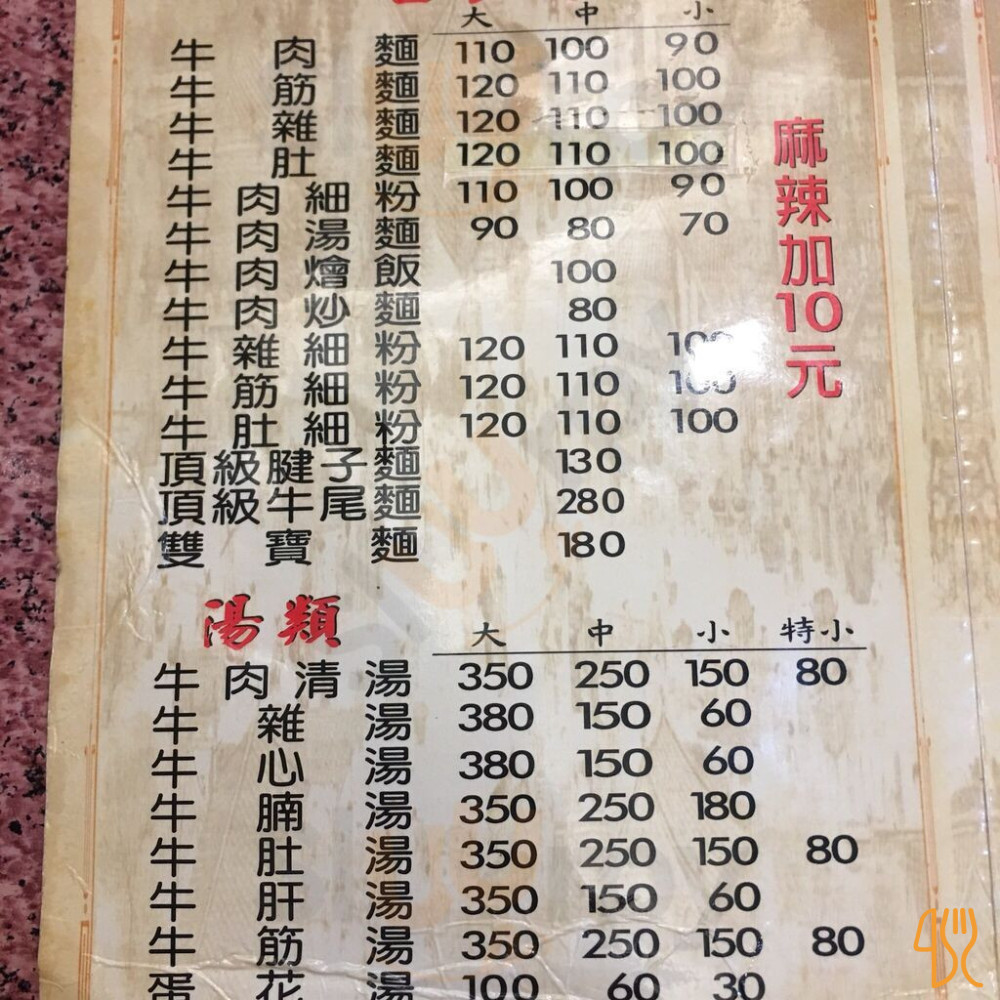 大 中 小
牛肉麵 110 100 90
牛筋麵 120 110 100
牛雜麵 120 110 100
牛肚麵 120 110 100
牛肉細粉 110 100 90
牛肉湯麵 90 80 70
牛肉燴飯 100
牛肉炒麵 80
牛雜細粉 120 110 100
牛筋細粉 120 110 100
牛肚細粉 120 110 100
頂級腱子麵 130
頂級牛尾麵 280
雙寶麵 180
麻辣加10元
湯類
大 中 小 特小
牛肉清湯 350 250 150 80
牛雜湯 380 150 60
牛心湯 380 150 60
牛腩湯 350 250 180
牛肚湯 350 250 150 80
牛肝湯 350 150 60
牛筋湯 350 250 150 80
蛋花湯 100 60 30